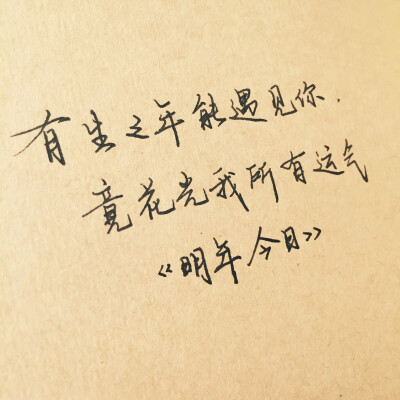 有生之年能遇见你.
竟花光我所有运气
《明年今日》